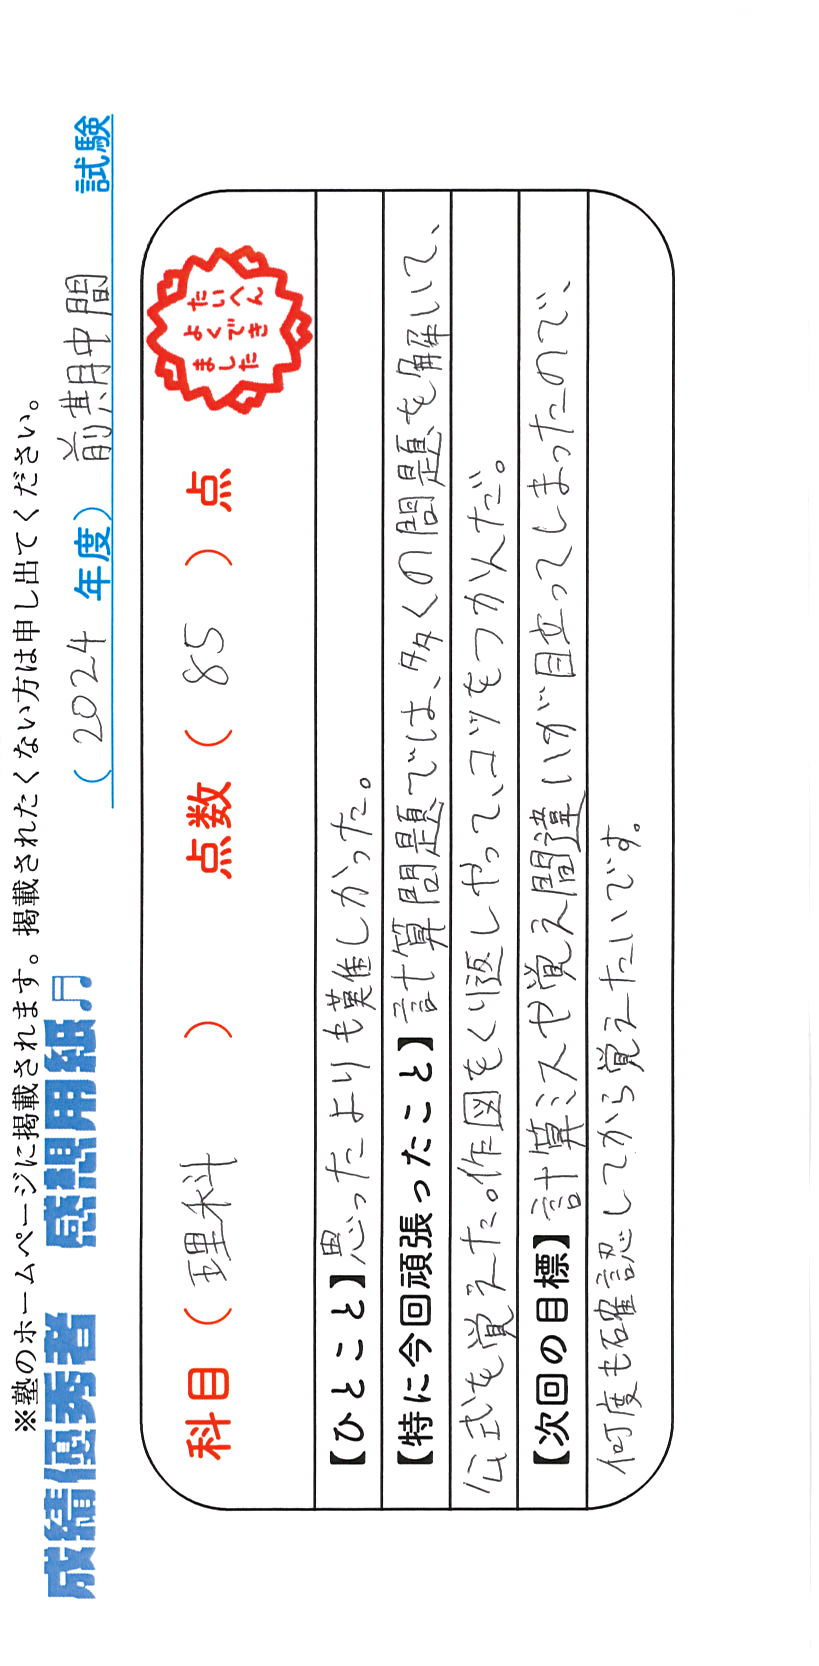 ※塾のホームページに掲載されます。掲載されたくない方は申し出てください。
成績優秀者　感想用紙♫
(2024年度) 前期中間 試験
科目（理科）　点数（85）点
たいへん
よくでき
ました
【ひとこと】思ったよりも難しかった。
【特に今回頑張ったこと】計算問題では、多くの問題を解いて、
公式を覚えた。作図をくり返しやって、コツをつかんだ。
【次回の目標】計算ミスや覚え間違いが目立ってしまったので、
何度も確認してから覚えたいです。